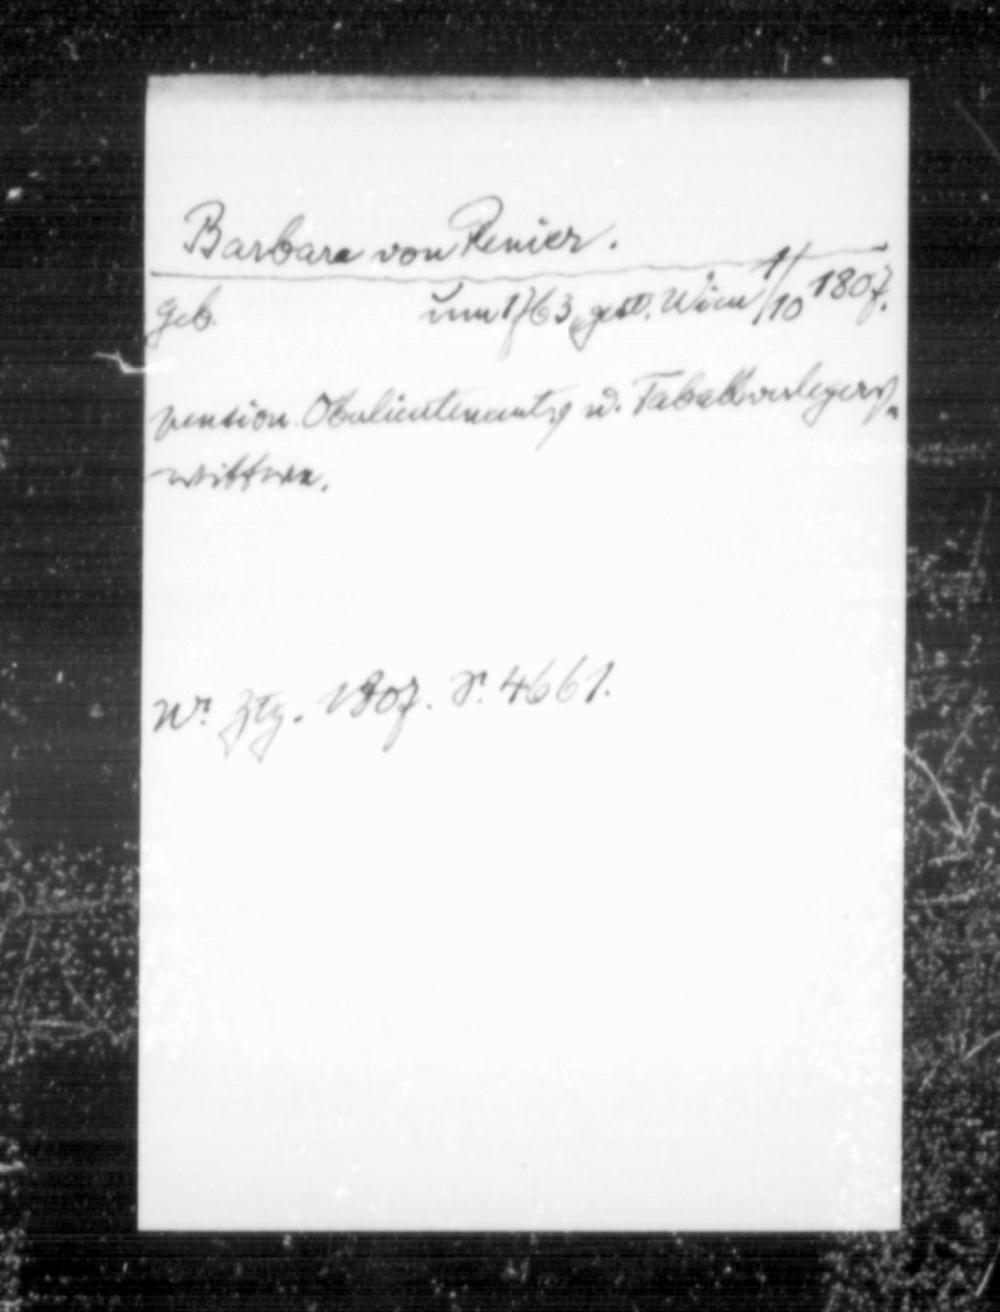 Barbara von Renier.
geb. um 1763, gest. Wien 1/10 1807.
pension. Oberlieutenants u. Tabakverlegers-
wittwe.
Wr. Ztg. 1807. S. 4661.